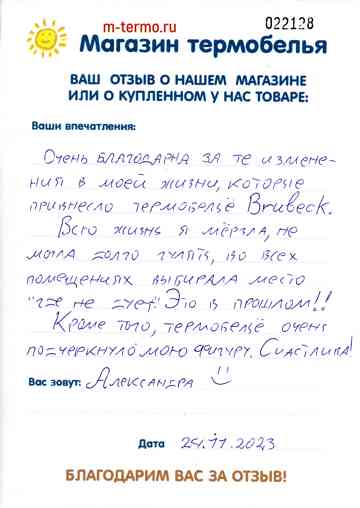 m-termo.ru
022128
Магазин термобелья
ВАШ ОТЗЫВ О НАШЕМ МАГАЗИНЕ
ИЛИ О КУПЛЕННОМ У НАС ТОВАРЕ:
Ваши впечатления:
Очень благодарна за те измене-
ния в моей жизни, которые
привнесло термобельё Brubeck.
Всю жизнь я мёрзла, не
могла долго гулять, во всех
помещениях выбирала место
"где не дует". Это в прошлом!!
Кроме того, термобельё очень
подчеркнуло мою фигуру. Счастлива!
Вас зовут: Александра
Дата 24.11.2023
БЛАГОДАРИМ ВАС ЗА ОТЗЫВ!